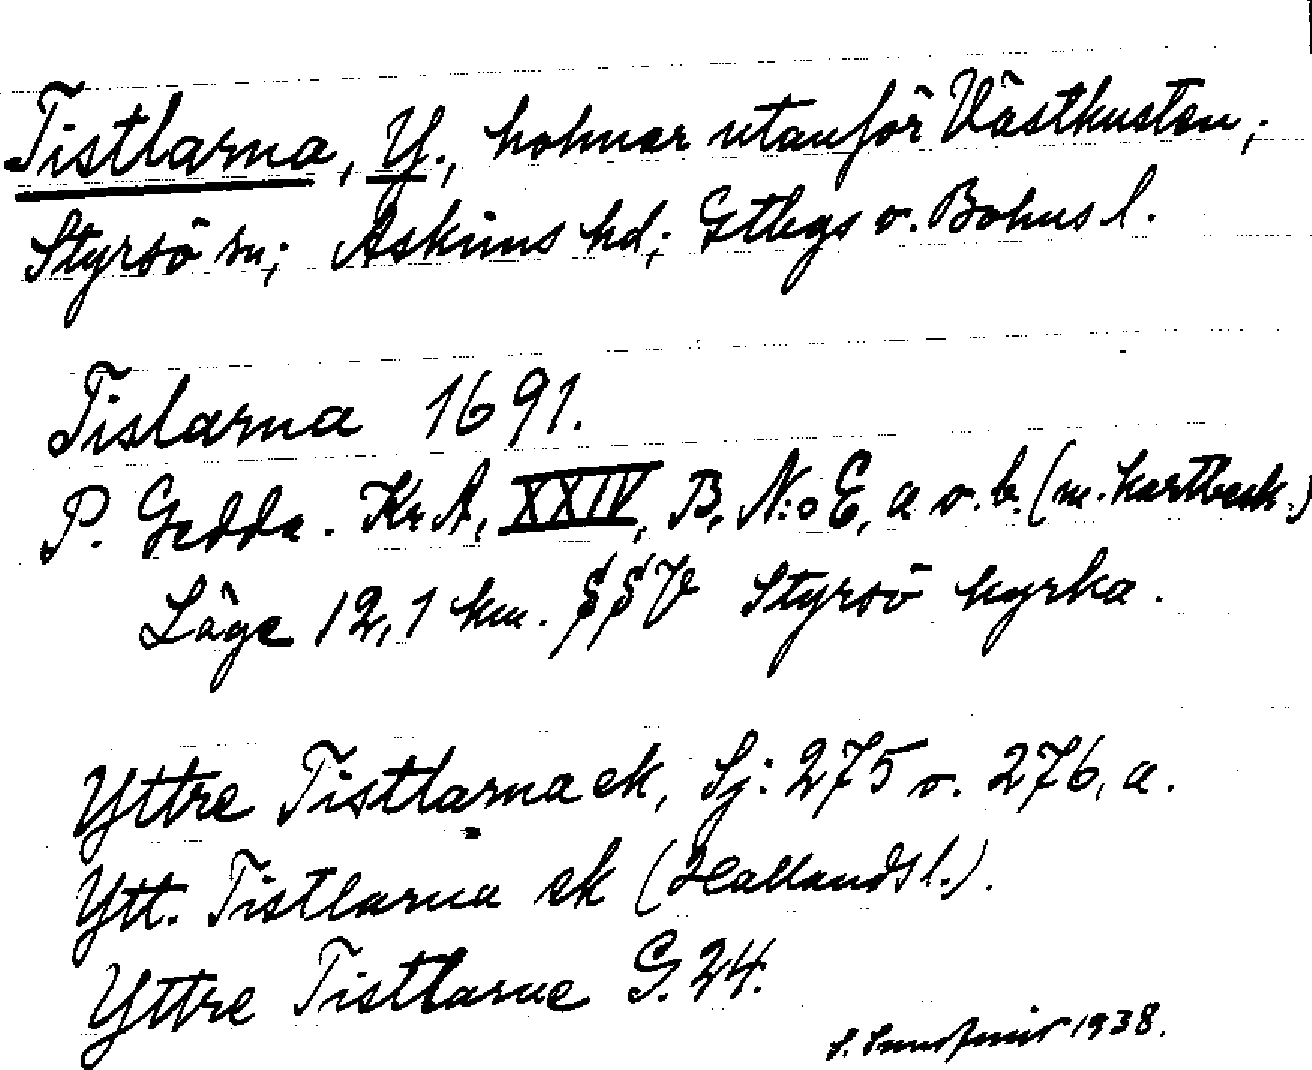 Tistlarna, Y., holmar utanför Västkusten;
Styrsö sn; Askims hd; Gtbgs o. Bohus l.
Tislarna 1691.
P. Gedda. Kr A, XXIV, B, N:o E, a o. b. (m. kartbesk.)
Läge 12,1 km. SSV Styrsö kyrka.
Yttre Tistlarna ek, Sj: 275 o. 276, a.
Ytt. Tistlarna ek (Hallands l.).
Yttre Tistlarne G. 24.
1938.